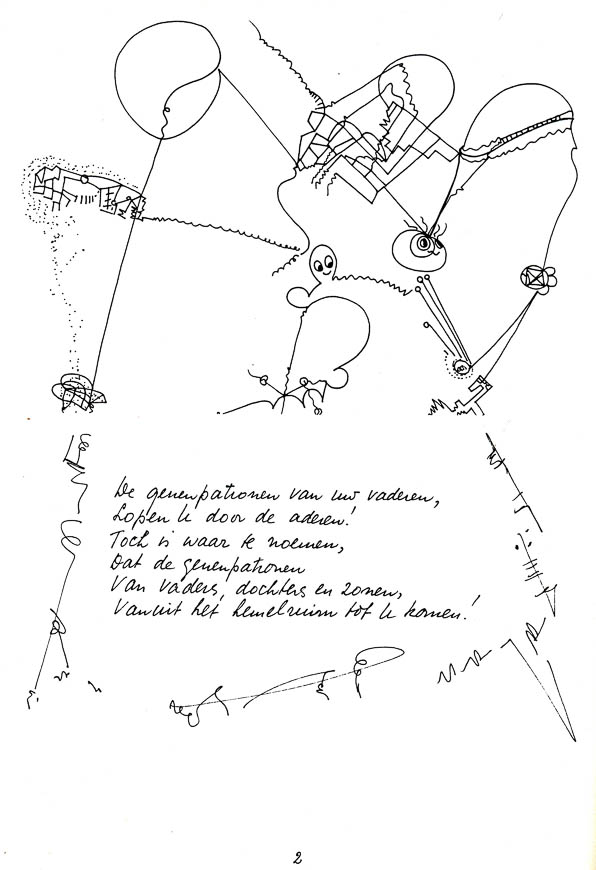 De genenpatronen van uw vaderen,
Lopen U door de aderen!
Toch is waar te noemen,
Dat de genenpatronen
Van vaders, dochters en zonen,
Vanuit het hemelruim tot U komen!
2